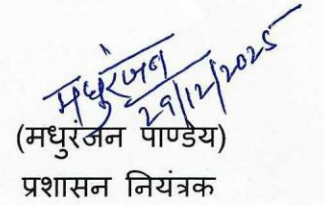 मधुरंजन
29/12/2025
(मधुरंजन पाण्डेय)
प्रशासन नियंत्रक